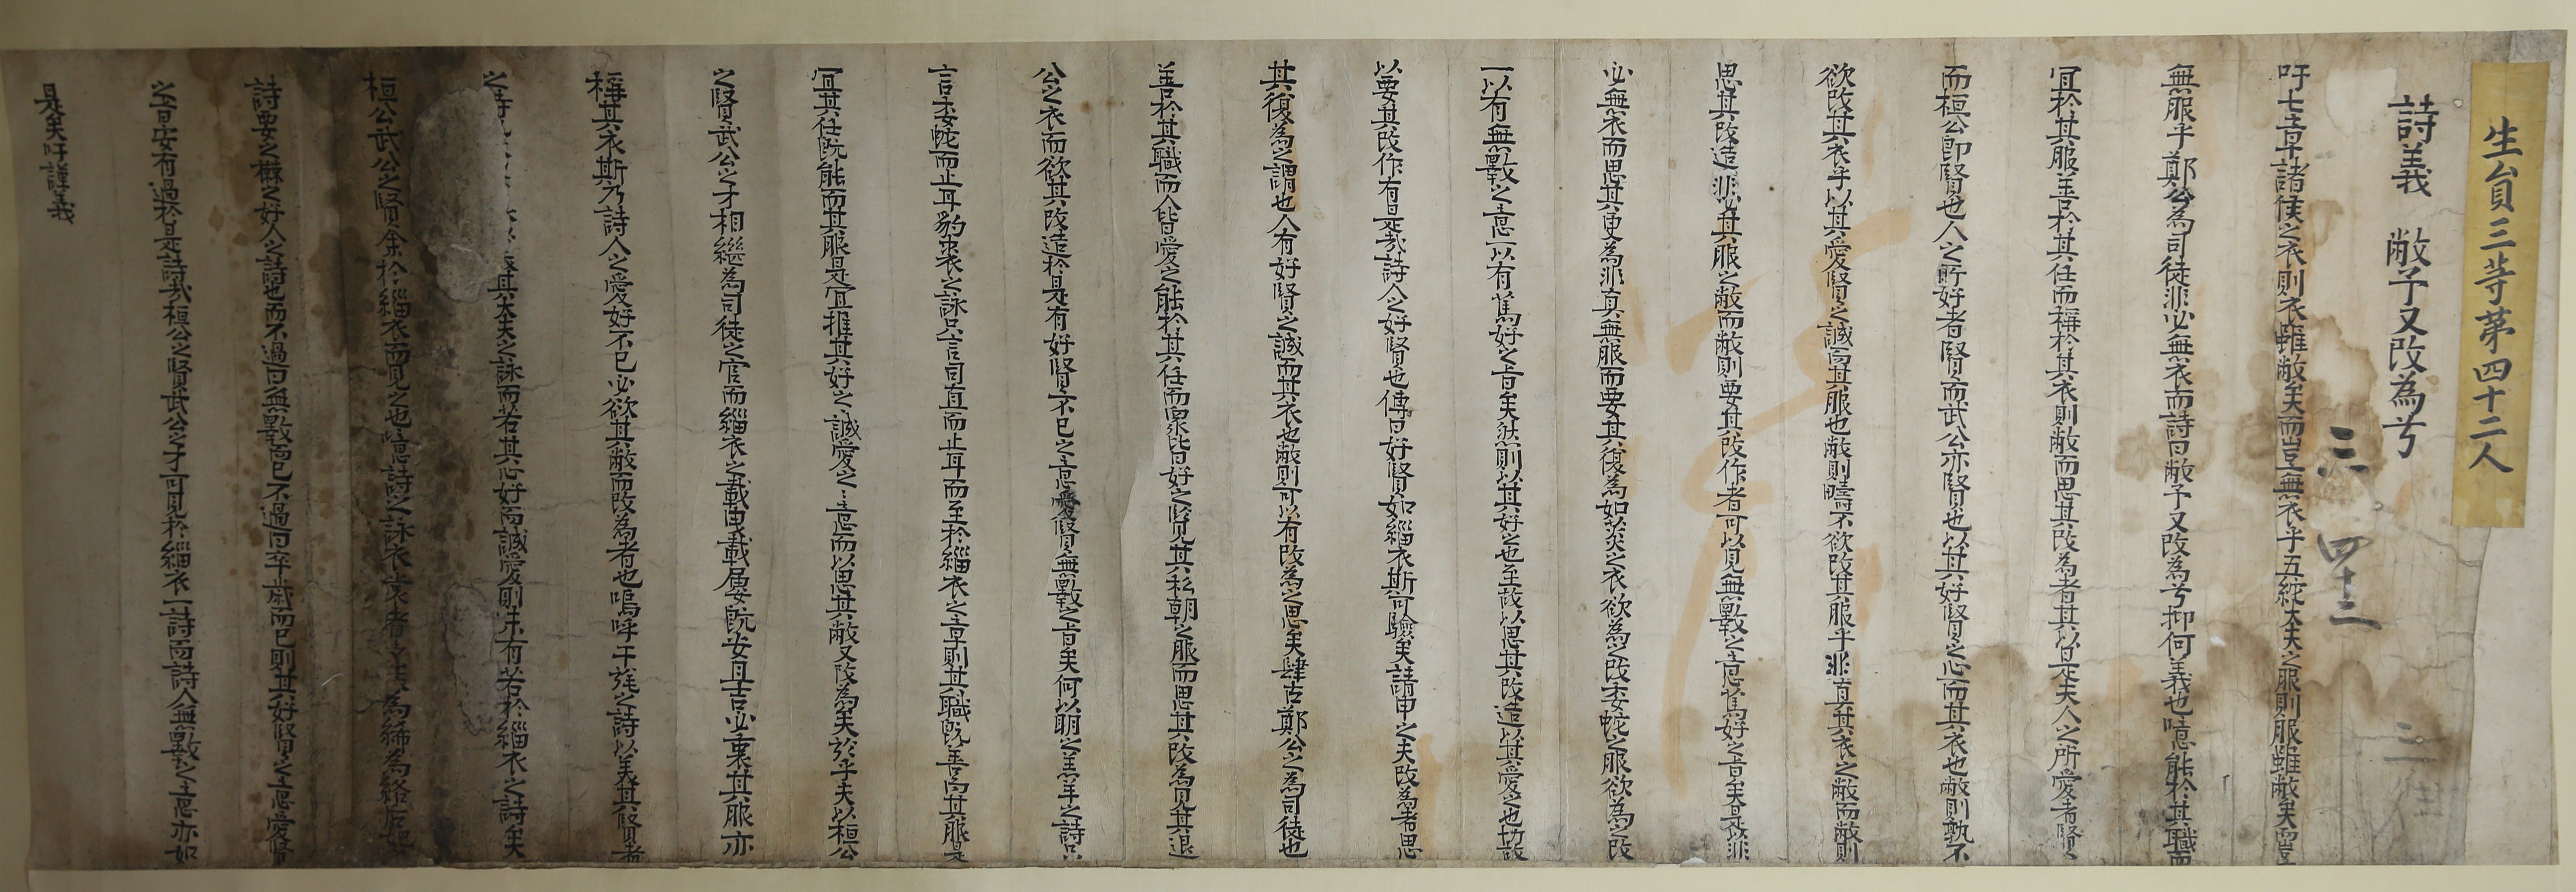 生員三等第四十二人
詩義 敝予又改為兮
三 四十二
吁七章諸侯之衣則衣雖敝矣而豈無衣乎五紽大夫之服則服雖敝矣而豈
無服乎鄭公為司徒非必無衣而詩曰敝予又改為兮抑何義也噫能於其職而
冝於其服善於其任而稱於其衣則敝而思其改為者其以是夫人之所愛者賢々
而桓公卽賢也人之所好者賢々而武公亦賢也以其好賢之心而其衣也敝則孰不
欲改其衣乎以其愛賢之誠而其服也敝則疇不欲改其服乎非直其衣之敝而敝則
思其改造非必其服之敝而敝則要其改作者可以見無斁之意篤好之旨矣是以非
必無衣而思其更為非直無服而要其復為如
之衣欲為之改委蛇之服欲為之改
一以有無斁之意一以有篤好之旨矣然則以其好之也至故以思其改造以其愛之也切故
以要其改作有是哉詩人之好賢也傳曰好賢如緇衣斯可驗矣請申之夫改為者思
其復為之謂也人有好賢之誠而其衣也敝則可以有改為之思矣肆古鄭公之為司徒也
善於其職而人皆愛之能於其任而衆皆好之賢見其私朝之服而思其改為見其退
公之衣而欲其改造於是有好賢不已之意愛賢無斁之旨矣何以明之羔羊之詩只
言委蛇而止耳豹裘之詠只言司直而止耳而至於緇衣之章則其職旣善而其服是
冝其任旣能而其服是冝推其好之誠愛之意而以思其敝又改為矣於乎夫以桓公
之賢武公之才相繼為司徒之官而緇衣之載曳載屢旣安且吉必裏其服亦
稱其衣斯乃詩人之愛好不已必欲其敝而改為者也嗚呼干旄之詩以美其賢者
之詩
其大夫之詠而若其心好而誠愛則未有若於緇衣之詩矣
桓公武公之賢余於緇衣而見之也噫詩之詠衣裳者
為絺為綌
詩要之襋之好人之詩也而不過曰無斁而已不過曰卒歲而已則其好賢之意愛賢
之旨安有過於是詩哉桓公之賢武公之才可見於緇衣一詩而詩人無斁之意亦如
是矣吁謹義